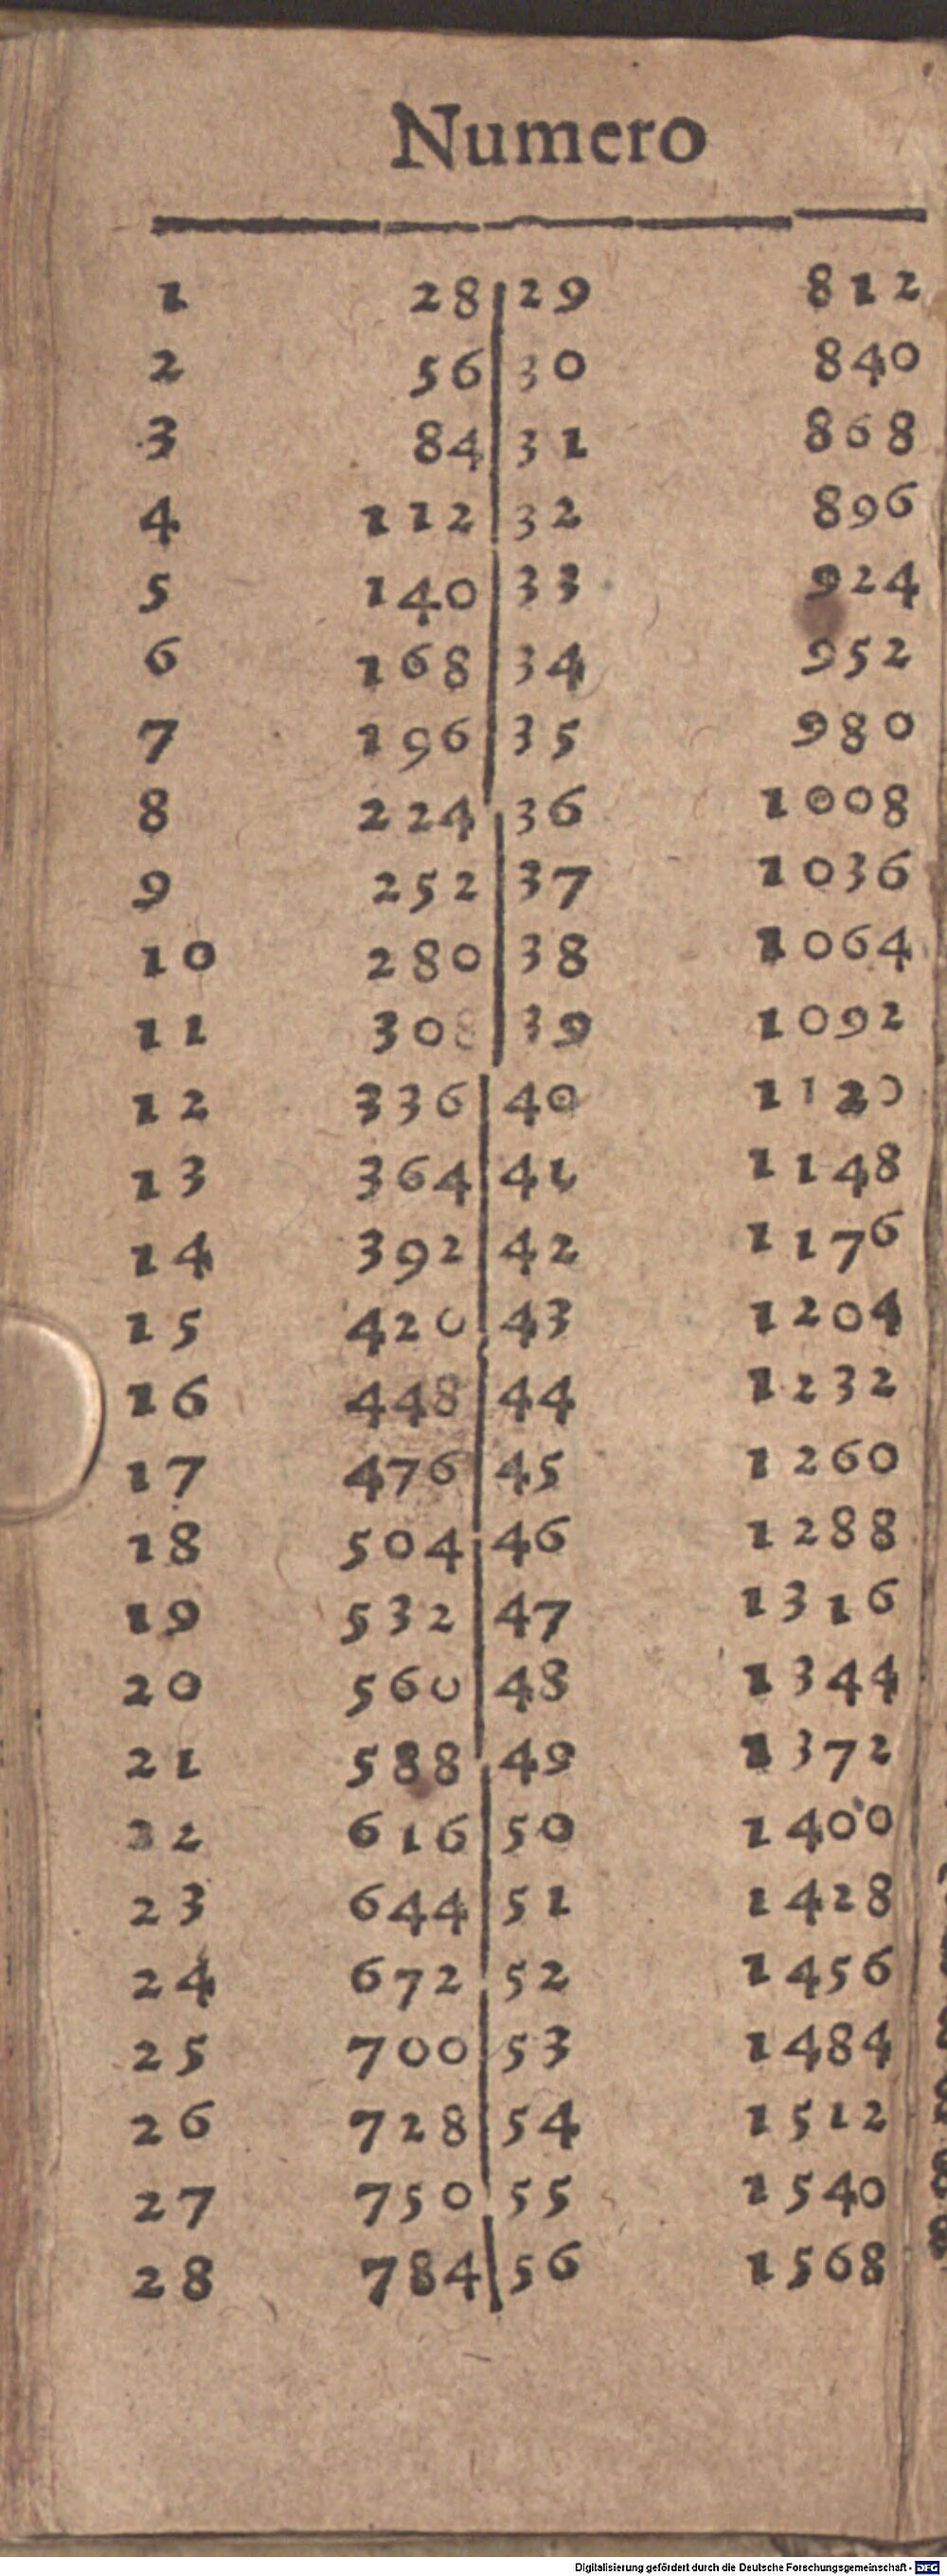 Numero
1 28 29 812
2 56 30 840
3 84 31 868
4 112 32 896
5 140 33 924
6 168 34 952
7 196 35 980
8 224 36 1008
9 252 37 1036
10 280 38 1064
11 308 39 1092
12 336 40 1120
13 364 41 1148
14 392 42 1176
15 420 43 1204
16 448 44 1232
17 476 45 1260
18 504 46 1288
19 532 47 1316
20 560 48 1344
21 588 49 1372
22 616 50 1400
23 644 51 1428
24 672 52 1456
25 700 53 1484
26 728 54 1512
27 750 55 1540
28 784 56 1568
Digitalisierung gefördert durch die Deutsche Forschungsgemeinschaft - DFG